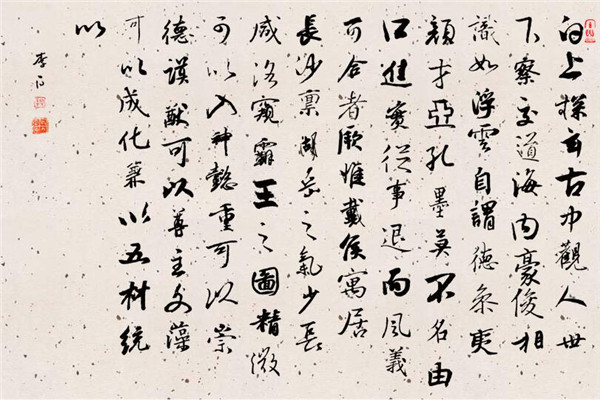 白上探玄古中觀人世
下察交道海內豪俊相
識如浮雲自謂德參夷
顏才亞孔墨莫不名由
口進實從事退而風義
可合者厥惟戴侯寓居
長沙稟湖岳之氣少長
咸洛窺霸王之圖精微
可以入神懿重可以崇
德謨猷可以尊主文藻
可以成化兼以五材統
以
李白